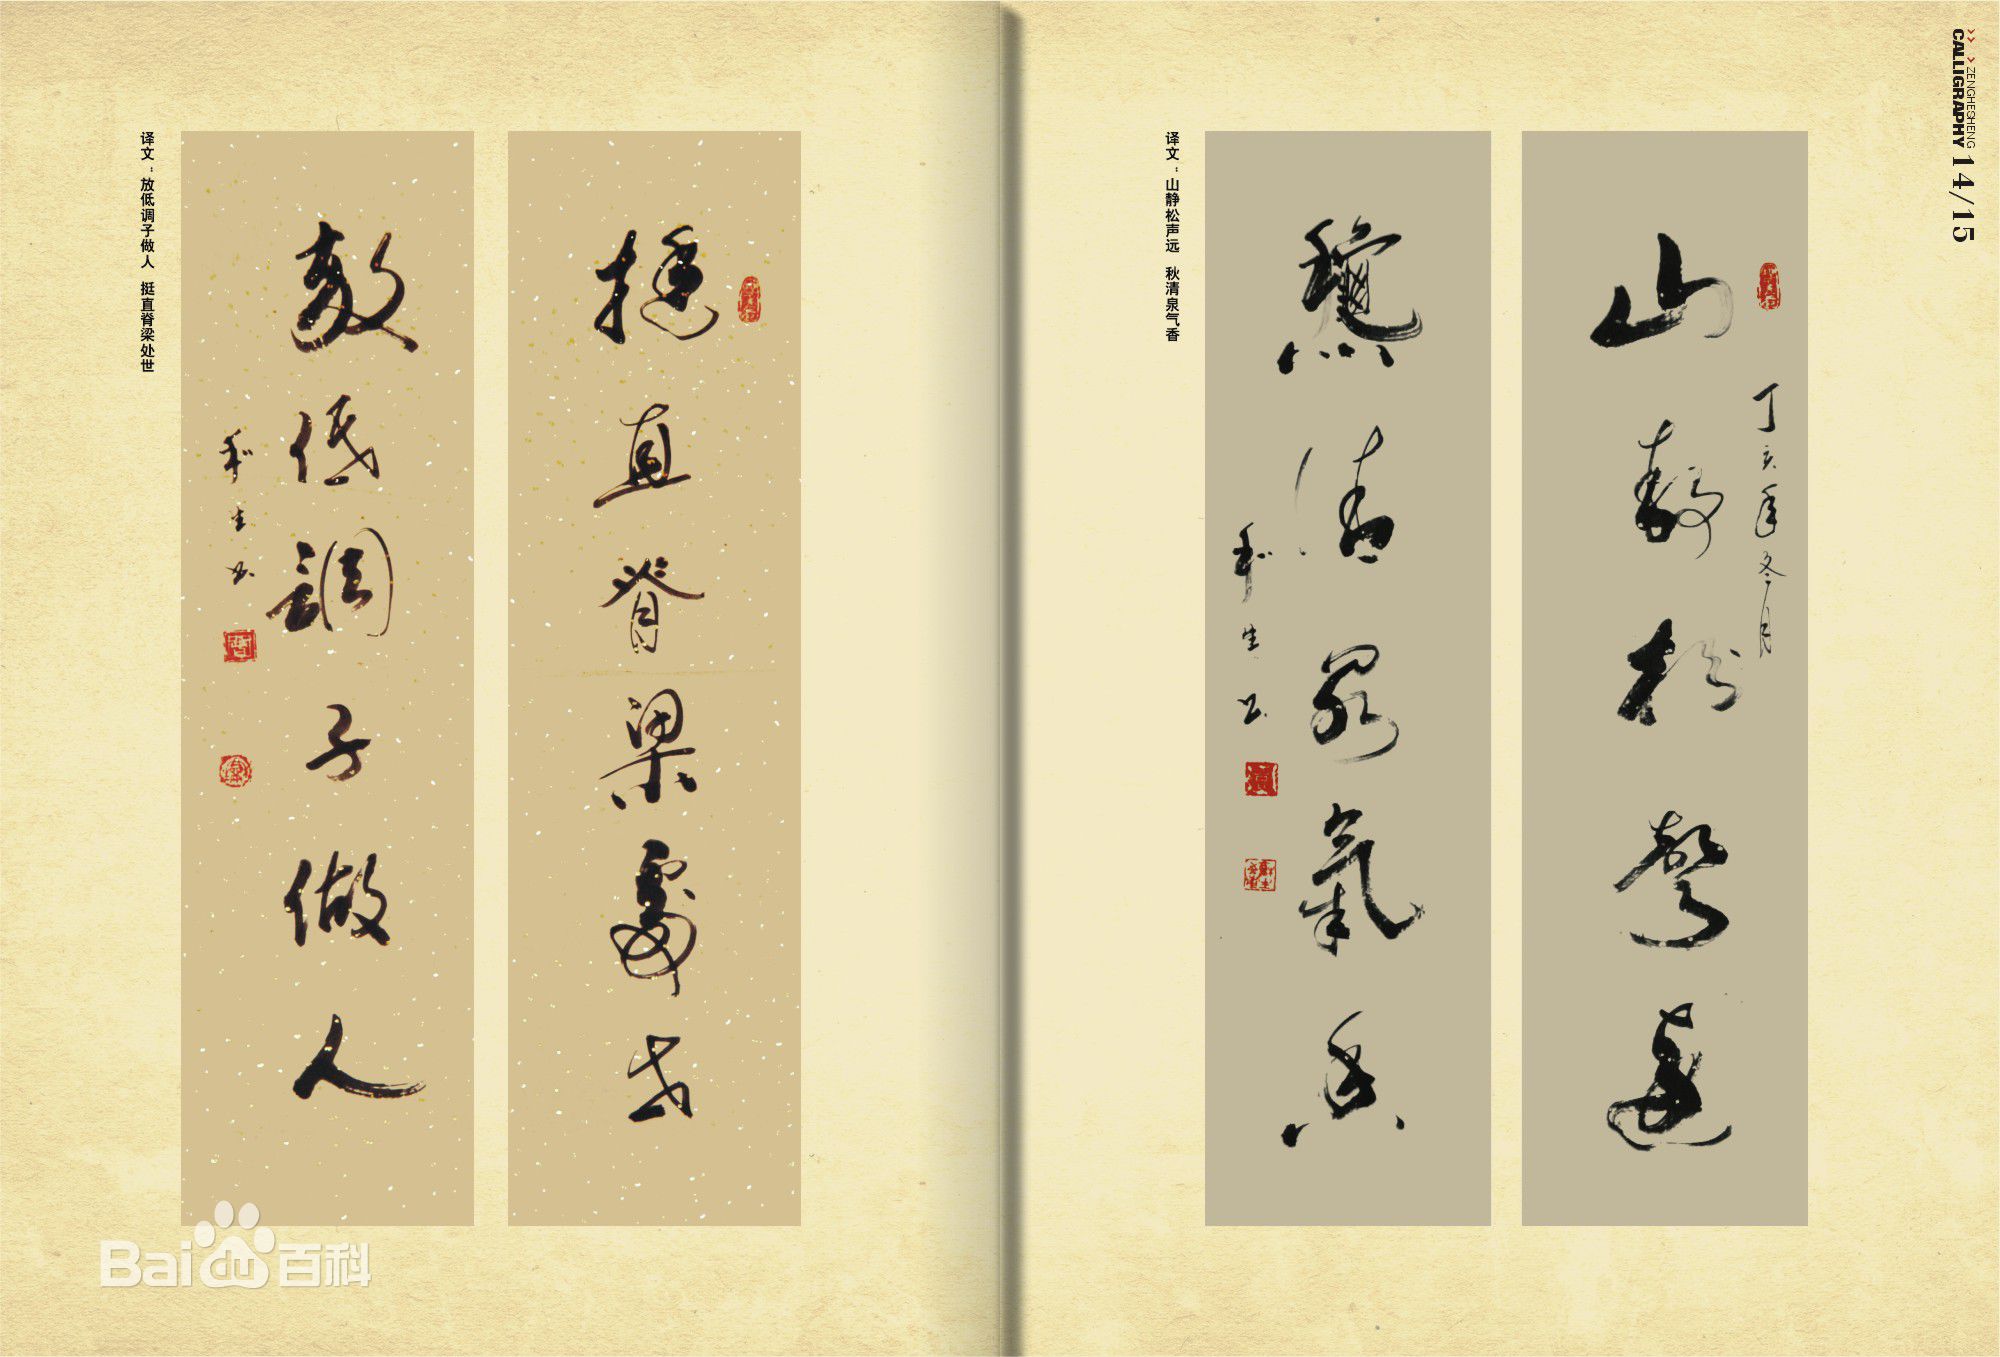 ZENGHESHENG
CALLIGRAPHY 14/15
山静松声远
丁亥年冬月
龝清泉氣香
和生书
译文：山静松声远 秋清泉气香
挺直脊梁處世
放低調子做人
和生书
译文：放低调子做人 挺直脊梁处世
Baidu百科